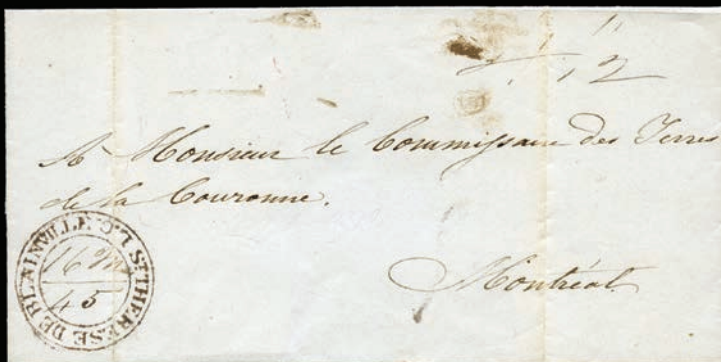 A Monsieur le Commissaire des Terres
de la Couronne.
Montréal.
ST THERESE DE BLAINVILLE L.C.
16 M
45